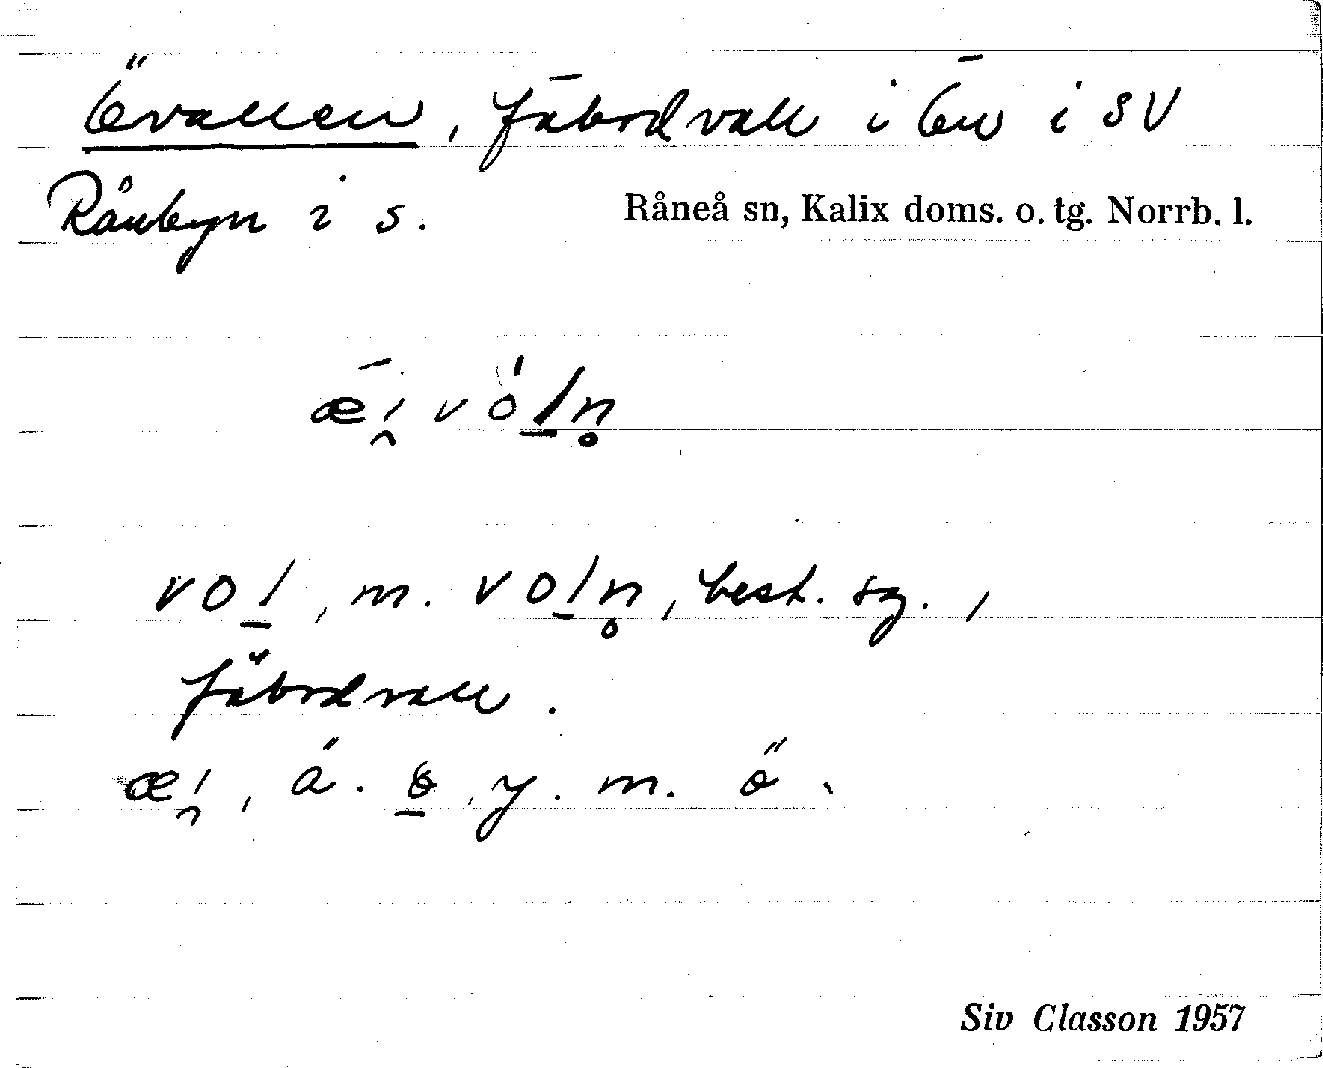 Övallen, fäbodvall i Ön i SV
Rånbyn i s. Råneå sn, Kalix doms. o. tg. Norrb. l.
æi̯ völn̥
vol, m. voln̥, best. sg.,
fäbodvall.
æi̯, á. ö, y. m. ö.
Siv Classon 1957